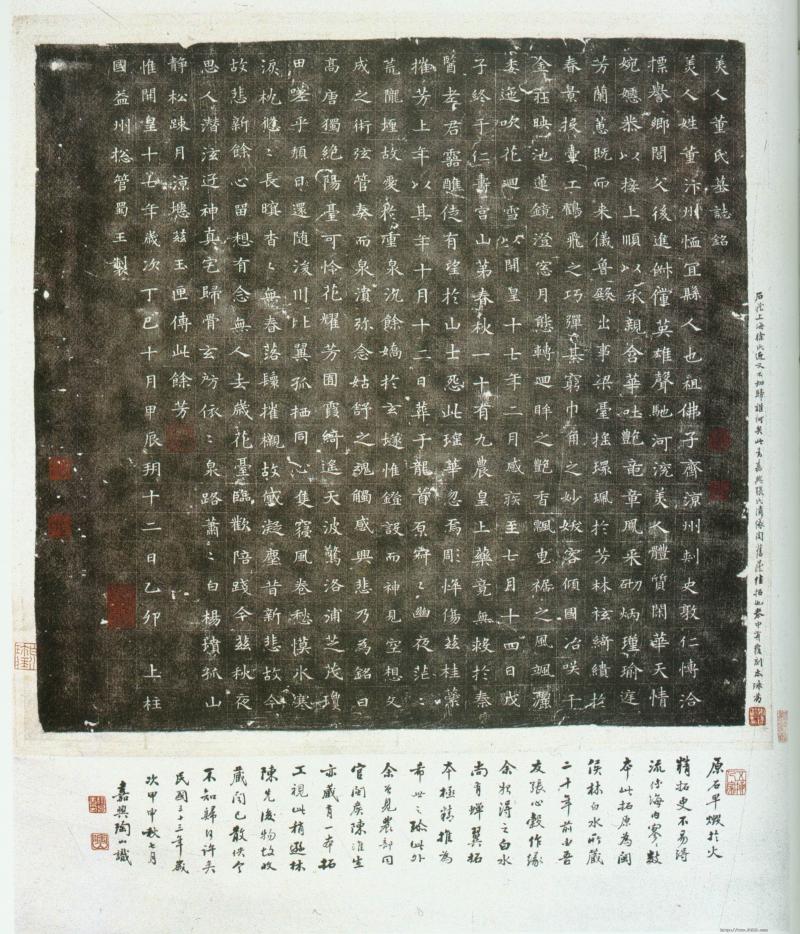 美人董氏墓誌銘
美人姓董汴州恤冝縣人也祖佛子齊涼州刺史敦仁博洽
標譽鄉閭父後進俶儻英雄聲馳河浣美人體質閑華天情
婉嫕恭以接上順以承親含華吐艷竜章鳳采砌炳瑾瑜庭
芳蘭蕙既而来儀魯殿出事梁臺搖環珮於芳林袨綺繢於
春景投壷工鶴飛之巧彈棊窮巾角之妙妖容傾國冶咲千
金莊映池蓮鏡澄窓月態轉廻眸之艷香飄曳裾之風颯灑
委迤吹花廻雪以開皇十七年二月感疾至七月十四日戊
子終于仁壽宮山第春秋一十有九農皇上藥竟無救於秦
醫老君靈醮徒有望於山士怨此瑤華忽焉彫悴傷茲桂蘂
摧芳上年以其年十月十二日葬于龍首原寂〻幽夜茫〻
荒隴埋故愛於重泉沉餘嬌於玄隧惟鐙設而神見空想文
成之術弦管奏而泉濆弥念姑舒之魂觸感興悲乃為銘曰
高唐獨絶陽臺可怜花耀芳囿霞綺遙天波驚洛浦芝茂瓊
田嗟乎頹日還隨湲川比翼孤栖同心隻寢風卷愁慔氷寒
淚枕悠〻長暝杳〻無春落鬟摧櫬故黛凝塵昔新悲故今
故悲新餘心留想有念無人去歲花臺臨歡陪踐今茲秋夜
思人潛泫迂神真宅歸骨玄房依〻泉路蕭〻白楊墳孤山
静松疎月涼瘞茲玉匣傳此餘芳
惟開皇十七年歲次丁巳十月甲辰朔十二日乙卯 上柱
國益州捴管蜀王製
原石早燬於火
精拓更不易得
流傳海內零數
本此拓原為閩
侯林白水所藏
二十年前由吾
友張心穀作緣
余物得之白水
尚有蟬翼拓
本極精推為
希世之珍此外
余曾見農部同
官閩侯陳淮生
亦藏有一本拓
工視此稍遜林
陳先後物故收
藏聞已散佚今
不知歸何許矣
民國三十三年歲
次甲申秋七月
嘉興陶 識